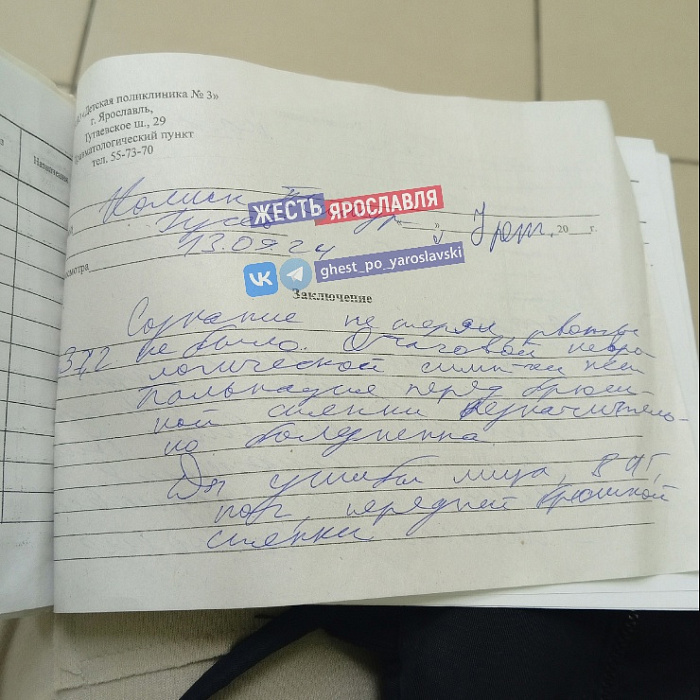 «Детская поликлиника № 3»
г. Ярославль,
Тутаевское ш., 29
Травматологический пункт
тел. 55-73-70
ЖЕСТЬ ЯРОСЛАВЛЯ
20 г.
13.09.24
осмотра
ghest_po_yaroslavski
Заключение
Сознание не терял, рвоты
37,2 не было. Очаговой невро-
логической симп-ки нет
пальпация перед брюш
ной стенки незначитель-
но болезненна.
Ds ушибы лица,
передней брюшной
стенки